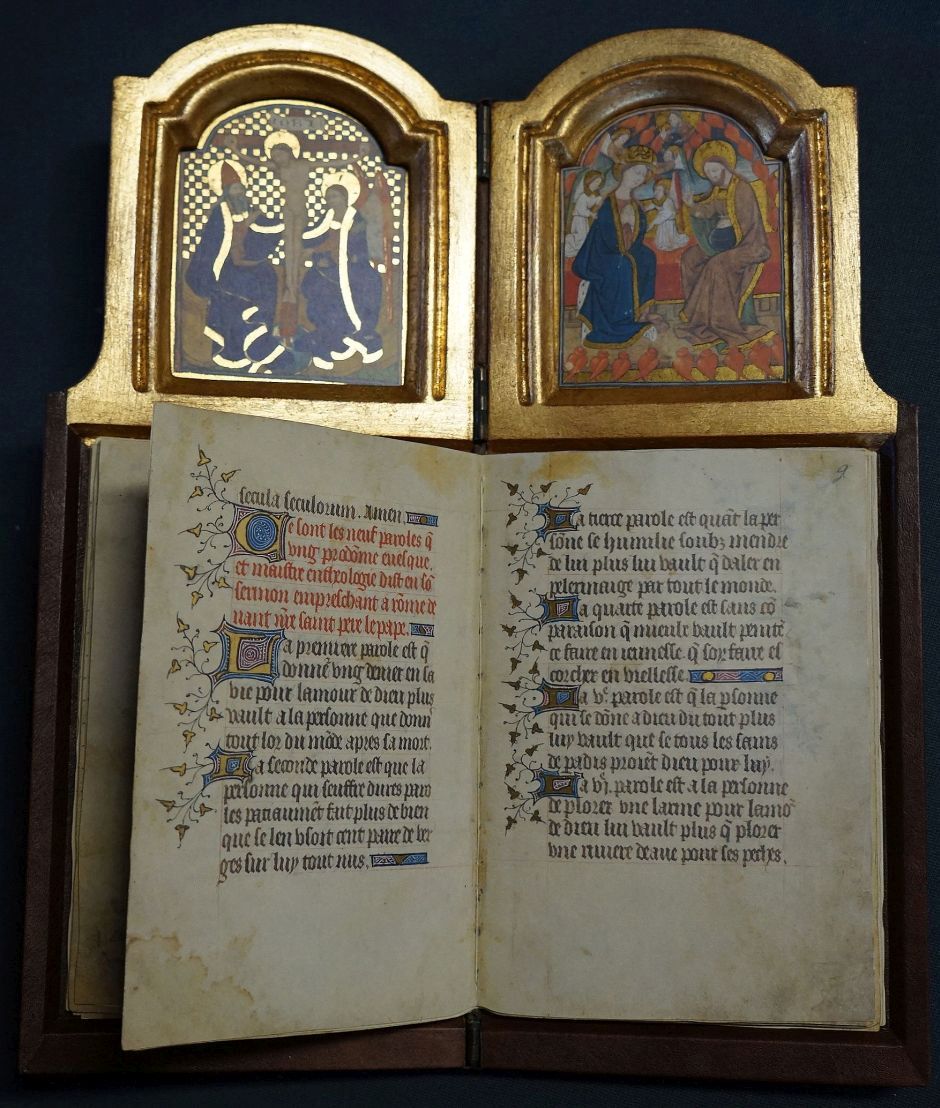 secula seculorum. Amen.
Ce sont les neuf paroles q̄
vng prodōme euesque.
et maistre en theologie dist en sō
sermon en preschant a rōme de
uant nr̄e saint pere le pape.
La premiere parole est q̄
donne vng denier en sa
vie pour lamour de dieu plus
vault a la personne que donn
tout lor du mōde apres sa mort.
La seconde parole est que la
personne qui seuffre dures paro
les paciaument fait plus de bien
que se len vsoit cent paire de ver
ges sur luy tout nus.
9
La tierce parole est quāt la per
sone se humilie soubz mendre
de lui plus lui vault q̄ daler en
pelerinaige par tout le monde.
La quarte parole est sans cō
paraison q̄ mieulz vault penitē
ce faire en ieunesse. q̄ soy faire es
corcher en viellesse.
La v.e parole est q̄ la p̄sonne
qui se dōne a dieu du tout plus
luy vault que se tous les sains
de padis proiēt dieu pour luy.
La vj. parole est a la personne
de plorer vne larme pour lamoᷣ
de dieu lui vault plus q̄ plorer
vne riuiere deaue pour ses peches.